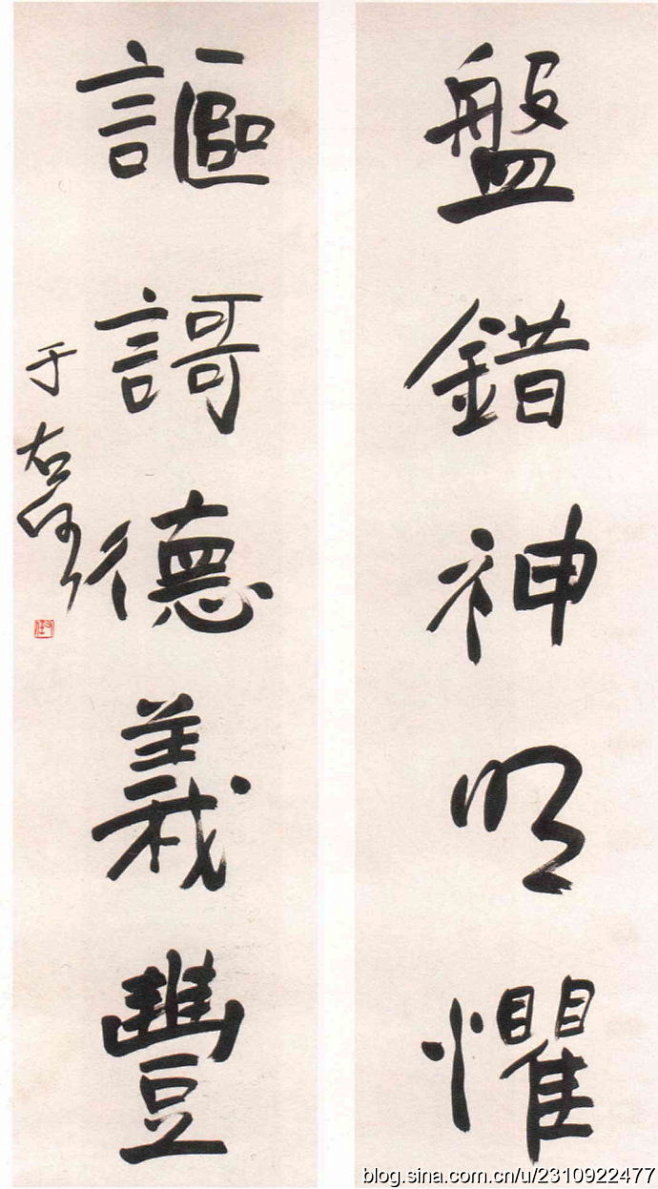 盤錯神明懼
謳謌德義豐
于右任
blog.sina.com.cn/u/2310922477